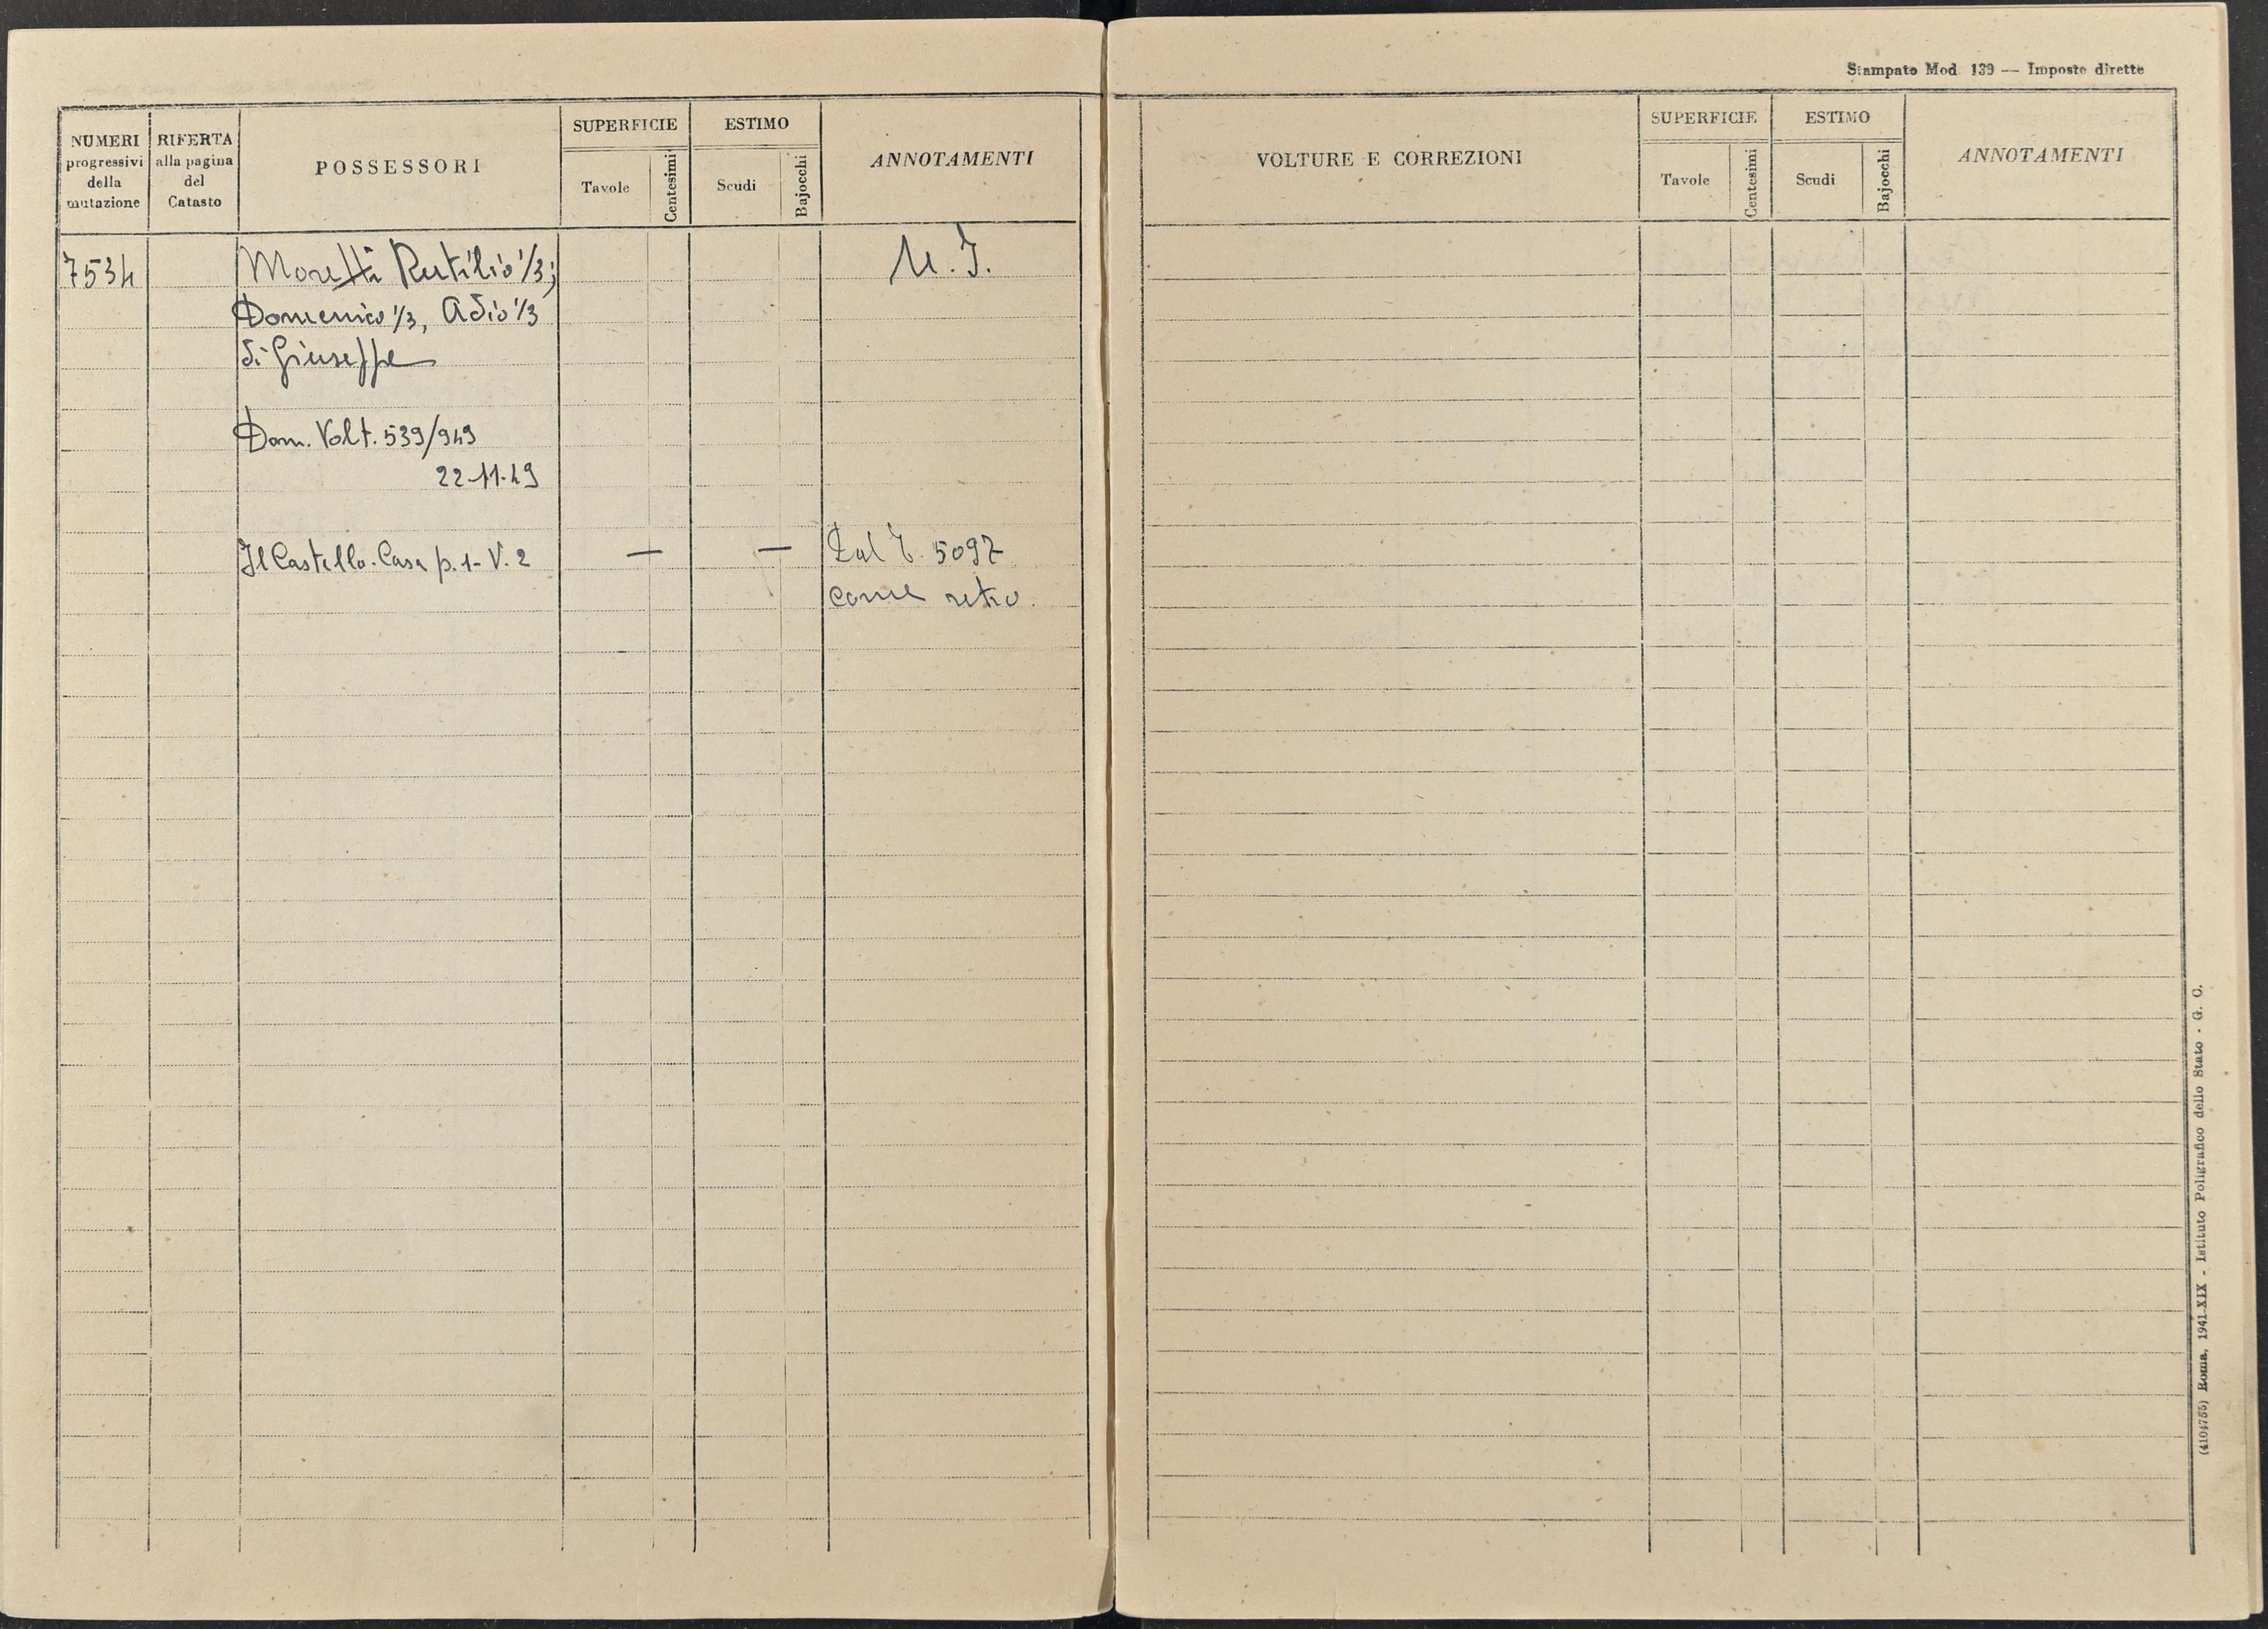 Stampato Mod. 139 — Imposte dirette
NUMERI progressivi della mutazione
RIFERTA alla pagina del Catasto
POSSESSORI
SUPERFICIE
Tavole
Centesimi
ESTIMO
Scudi
Bajocchi
ANNOTAMENTI
7534
Moretti Rutilio 1/3;
Domenico 1/3, Adio 1/3
di Giuseppe
U. I.
Dom. Volt. 539/949
22-11-49
Il Castello. Casa p. 1 - V. 2
—
—
Dal T. 5097
come retro.
VOLTURE E CORREZIONI
SUPERFICIE
Tavole
Centesimi
ESTIMO
Scudi
Bajocchi
ANNOTAMENTI
(4104755) Roma, 1941-XIX - Istituto Poligrafico dello Stato - G. C.